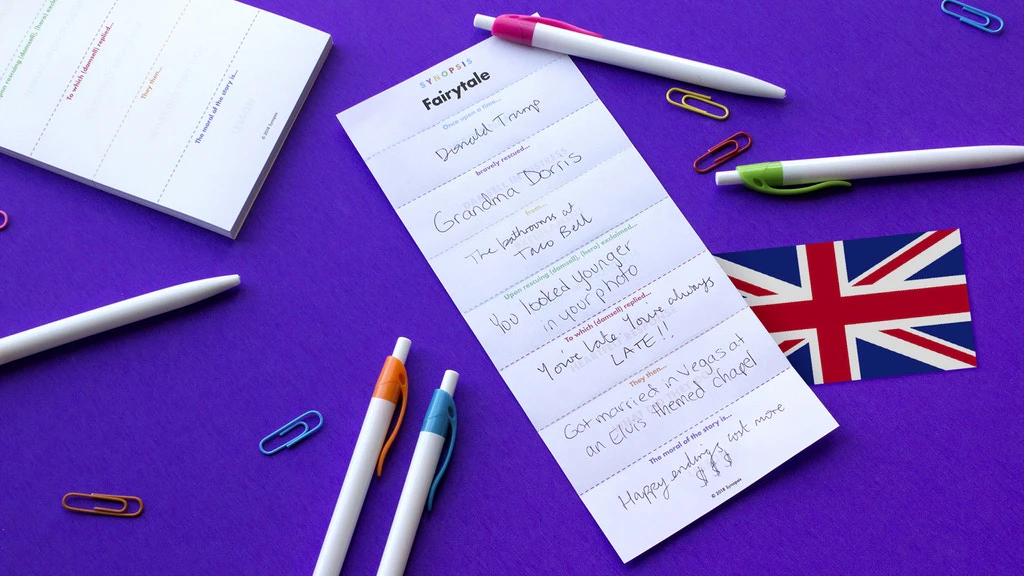 (damsel), (hero) exclaimed...
To which (damsel) replied...
They then...
The moral of the story is...
© 2018 Synopsis
SYNOPSIS
Fairytale
Once upon a time...
Donald Trump
bravely rescued...
Grandma Dorris
from...
The bathrooms at
Taco Bell
Upon rescuing (damsel), (hero) exclaimed...
You looked younger
in your photo
To which (damsel) replied...
You're late. You're always
LATE!!
They then...
Got married in Vegas at
an Elvis themed chapel
The moral of the story is...
Happy endings cost more
$$$
© 2018 Synopsis